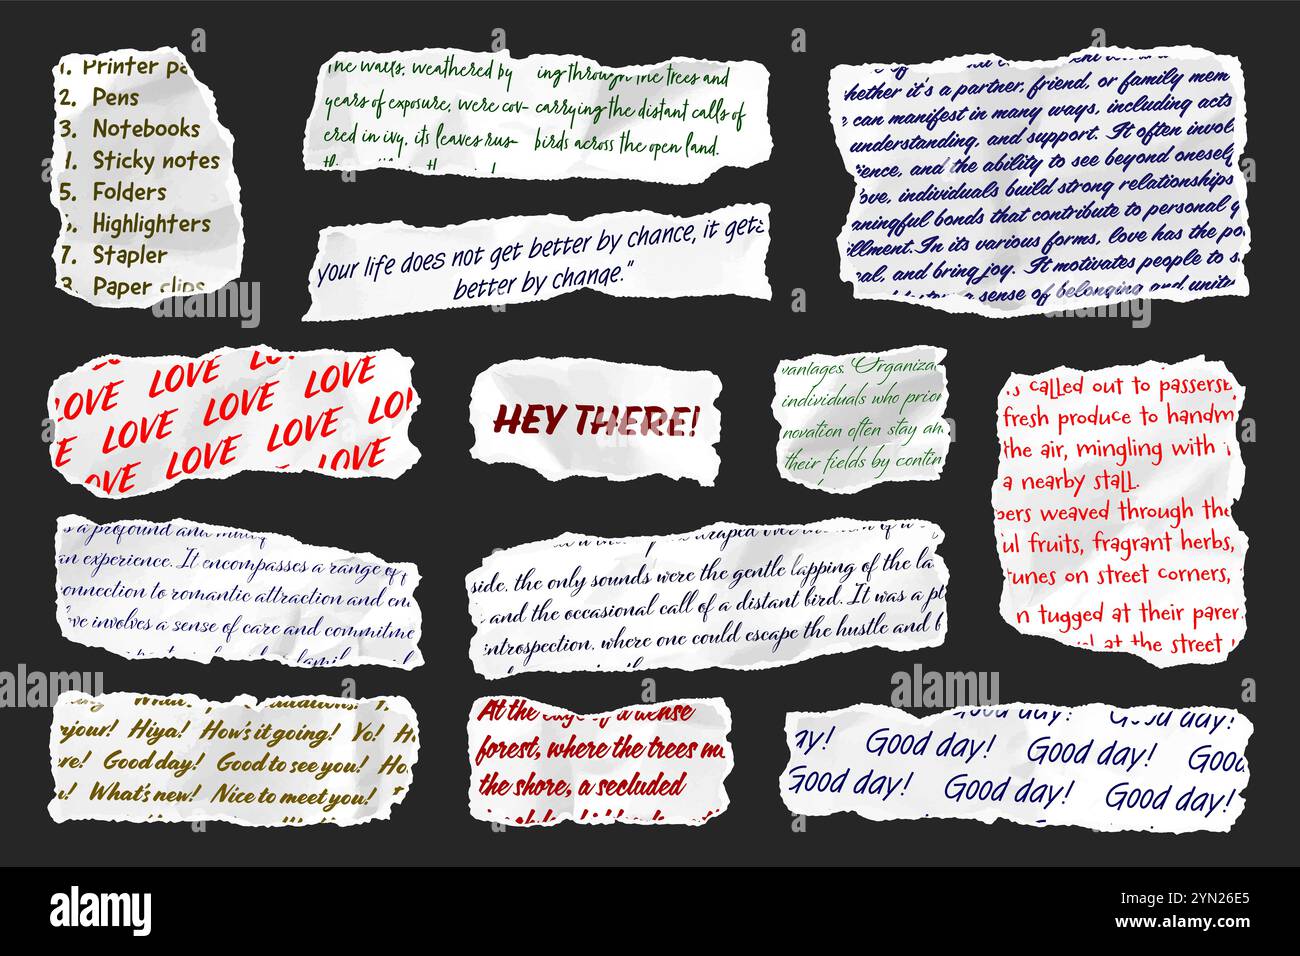 1. Printer
2. Pens
3. Notebooks
4. Sticky notes
5. Folders
6. Highlighters
7. Stapler
8. Paper clips
The walls, weathered by
years of exposure, were cov-
ered in ivy, its leaves rus-
ing through the trees and
carrying the distant calls of
birds across the open land.
your life does not get better by chance, it gets
better by change."
whether it's a partner, friend, or family mem
can manifest in many ways, including acts
understanding, and support. It often invol
ience, and the ability to see beyond onesel
love, individuals build strong relationships
aningful bonds that contribute to personal g
illment. In its various forms, love has the po
eal, and bring joy. It motivates people to s
a sense of belonging and unity
LOVE LOVE LOVE LOVE
LOVE LOVE LOVE LOVE LO
E LOVE LOVE LOVE LOVE
HEY THERE!
vantages. Organiza
individuals who prior
novation often stay an
their fields by contin
s called out to passersb
fresh produce to handm
the air, mingling with
a nearby stall.
pers weaved through the
ul fruits, fragrant herbs,
tunes on street corners,
n tugged at their paren
at the street
s a profound and
an experience. It encompasses a range of
onnection to romantic attraction and em
ove involves a sense of care and commitme
side, the only sounds were the gentle lapping of the la
and the occasional call of a distant bird. It was a pl
introspection, where one could escape the hustle and b
njour! Hiya! How's it going! Yo! H
ve! Good day! Good to see you! Ho
What's new! Nice to meet you!
At the edge of a dense
forest, where the trees m
the shore, a secluded
day! Good day!
ay! Good day! Good day! Good
Good day! Good day! Good day!
alamy
Image ID: 2YN26E5
www.alamy.com